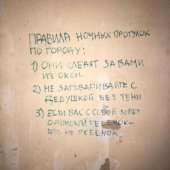 ПРАВИЛА НОЧНЫХ ПРОГУЛОК
ПО ГОРОДУ:
1) ОНИ СЛЕДЯТ ЗА ВАМИ
ИЗ ОКОН.
2) НЕ ЗАГОВАРИВАЙТЕ С
ДЕДУШКОЙ БЕЗ ТЕНИ
3) ЕСЛИ ВАС С СОБОЙ ЗОВЁТ
РЕБЕНОК-
ЭТО НЕ РЕБЕНОК